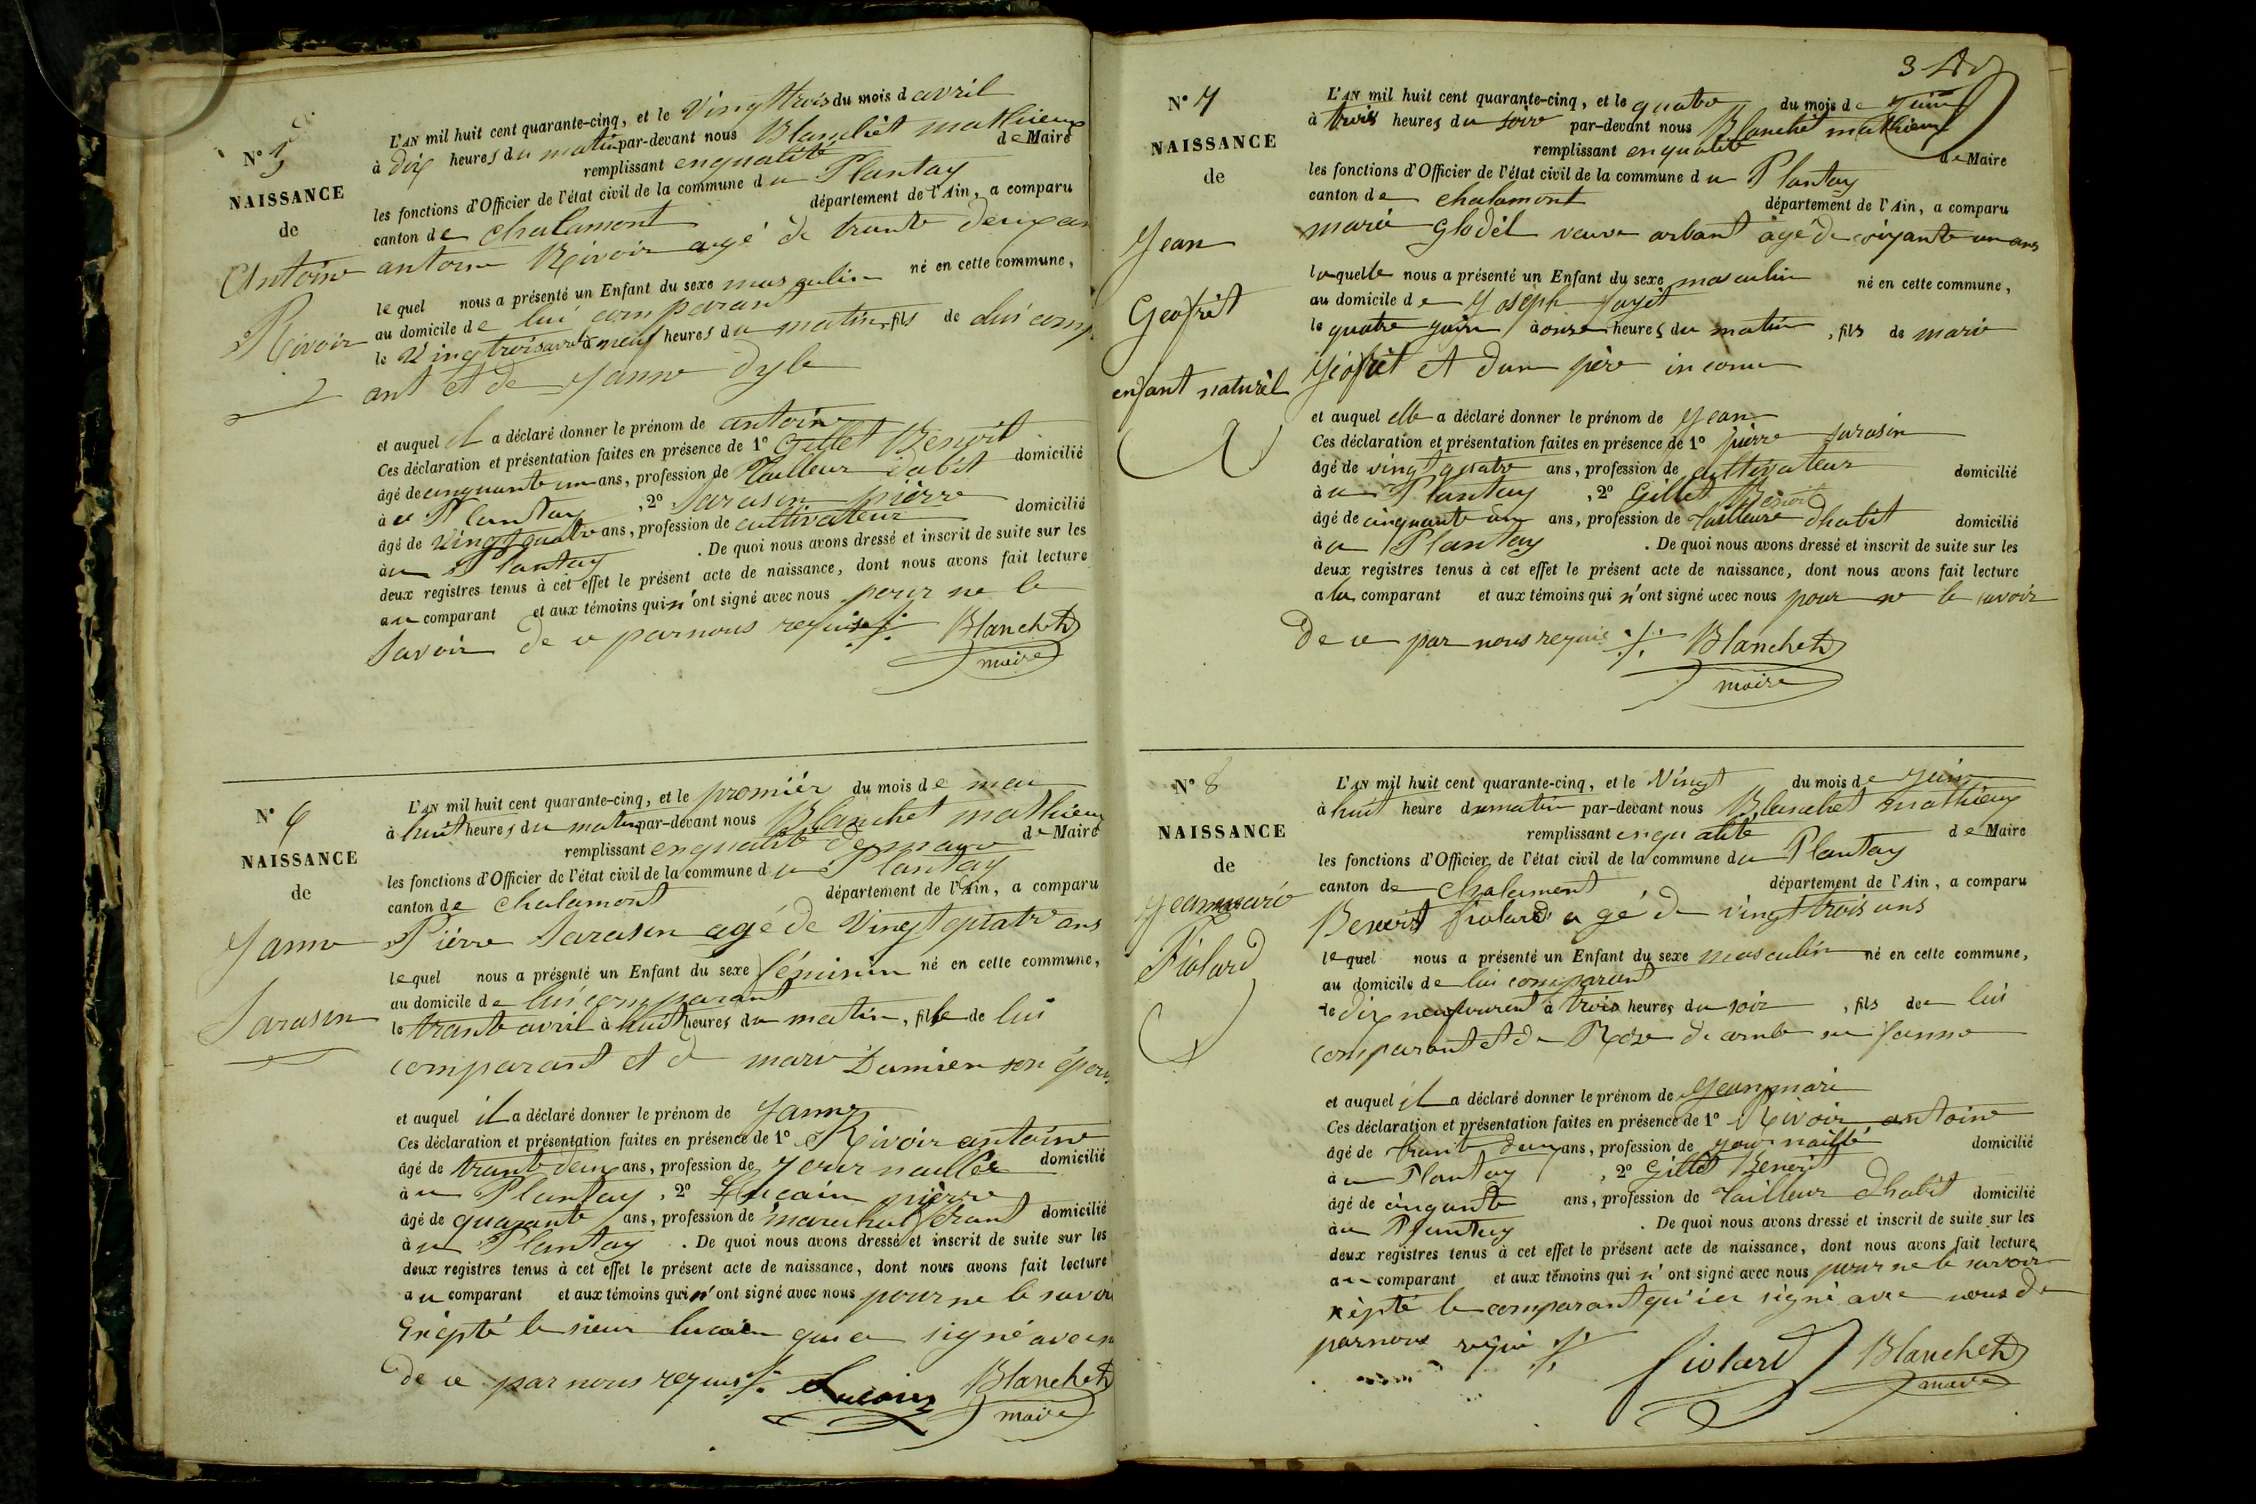 N° 5
NAISSANCE
de
Antoine
Rivoir
L'AN mil huit cent quarante-cinq, et le vingttrois du mois d avril
à dix heures du matin par-devant nous Blanchet mathieux
remplissant enqualité de Maire
les fonctions d'Officier de l'état civil de la commune du Plantay
canton de chalamont département de l'Ain, a comparu
antoine Rivoir agé de trante deux ans
lequel nous a présenté un Enfant du sexe masculin né en cette commune,
au domicile de lui comparant
le vingtrois avril à neuf heures du matin, fils de lui comp
ant et de Janne dyle
et auquel il a déclaré donner le prénom de antoine
Ces déclaration et présentation faites en présence de 1° Gillet Benoit
âgé de cinquante un ans, profession de Tailleur dabit domicilié
à u Plantay, 2° Sarasin pierre
âgé de vingtquatre ans, profession de cultivateur domicilié
à u Plantay. De quoi nous avons dressé et inscrit de suite sur les
deux registres tenus à cet effet le présent acte de naissance, dont nous avons fait lecture
au comparant et aux témoins qui n'ont signé avec nous pour ne le
savoir de ce par nous requis Blanchet
maire
N° 6
NAISSANCE
de
Janne
Sarasin
L'AN mil huit cent quarante-cinq, et le premier du mois de mai
à huit heures du matin par-devant nous Blanchet mathieux
remplissant enqualité de maire de Maire
les fonctions d'Officier de l'état civil de la commune du Plantay
canton de chalamont département de l'Ain, a comparu
Pierre Sarasin agé de vingt quatre ans
lequel nous a présenté un Enfant du sexe féminin né en cette commune,
au domicile de lui comparant
le trante avril à huit heures du matin, fille de lui
comparant et de marie Damien son épous
et auquel il a déclaré donner le prénom de Janne
Ces déclaration et présentation faites en présence de 1° Rivoir antoine
âgé de trante deux ans, profession de journallier domicilié
à u Plantay, 2° Lucain pierre
âgé de quarante ans, profession de marechal ferant domicilié
à u Plantay. De quoi nous avons dressé et inscrit de suite sur les
deux registres tenus à cet effet le présent acte de naissance, dont nous avons fait lecture
au comparant et aux témoins qui n'ont signé avec nous pour ne le savoir
Exépté le sieur lucain qui a signé avec n
de ce par nous requis Lucain Blanchet
maire
3
N° 7
NAISSANCE
de
Jean
Geofrèt
enfant naturel
L'AN mil huit cent quarante-cinq, et le quatre du mois de juin
à trois heures du soire par-devant nous Blanchet mathieux
remplissant enqualité de Maire
les fonctions d'Officier de l'état civil de la commune du Plantay
canton de chalamont département de l'Ain, a comparu
marie glodèl veuve arbant âgé de soixante un ans
laquelle nous a présenté un Enfant du sexe masculin né en cette commune,
au domicile de Joseph fayet
le quatre juin à onze heures du matin, fils de marie
géofrèt et dun père inconu
et auquel elle a déclaré donner le prénom de Jean
Ces déclaration et présentation faites en présence de 1° pierre sarasin
âgé de vingt quatre ans, profession de cultivateur domicilié
à u Plantay, 2° Gillet Benoit
âgé de cinquante un ans, profession de tailleure dhabit domicilié
à u Plantay. De quoi nous avons dressé et inscrit de suite sur les
deux registres tenus à cet effet le présent acte de naissance, dont nous avons fait lecture
a la comparant et aux témoins qui n'ont signé avec nous pour ne le savoir
De ce par nous requis Blanchet
maire
N° 8
NAISSANCE
de
jeanmarie
Fiolard
L'AN mil huit cent quarante-cinq, et le vingt du mois de juin
à huit heure du matin par-devant nous Blanchet mathieux
remplissant enqualité de Maire
les fonctions d'Officier de l'état civil de la commune du Plantay
canton de chalamont département de l'Ain, a comparu
Benoit fiolard agé de vingt trois ans
lequel nous a présenté un Enfant du sexe masculin né en cette commune,
au domicile de lui comparant
le dix neuf courent à trois heures du soir, fils de lui
comparant et de Rose sa fanme
et auquel il a déclaré donner le prénom de Jeanmarie
Ces déclaration et présentation faites en présence de 1° Rivoir antoine
âgé de trante deux ans, profession de journaillé domicilié
à u Plantay, 2° Gillet Benoit
âgé de cinquante ans, profession de Tailleur dhabit domicilié
à u Plantay. De quoi nous avons dressé et inscrit de suite sur les
deux registres tenus à cet effet le présent acte de naissance, dont nous avons fait lecture
au comparant et aux témoins qui n'ont signé avec nous pour ne le savoir
xépté le comparant qui a signé avec nous de
par nous requi fiolard Blanchet
maire